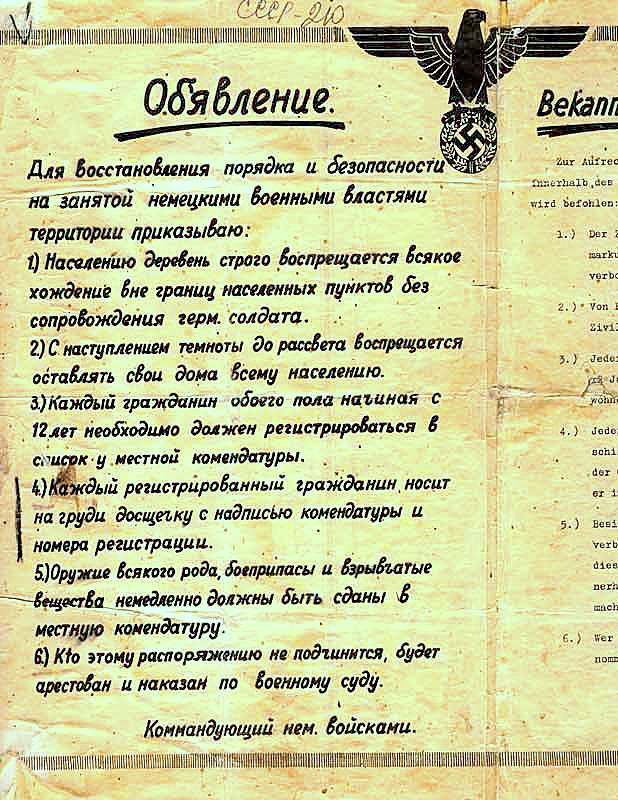 СССР-210
Обявление.
Для восстановления порядка и безопасности
на занятой немецкими военными властями
территории приказываю:
1.) Населению деревень строго воспрещается всякое
хождение вне границ населенных пунктов без
сопровождения герм. солдата.
2.) С наступлением темноты до рассвета воспрещается
оставлять свои дома всему населению.
3.) Каждый гражданин обоего пола начиная с
12 лет необходимо должен регистрироваться в
список у местной комендатуры.
4.) Каждый регистрированный гражданин носит
на груди досщечку с надписью комендатуры и
номера регистрации.
5.) Оружие всякого рода, боеприпасы и взрывчатые
вещества немедленно должны быть сданы в
местную комендатуру.
6.) Кто этому распоряжению не подчинится, будет
арестован и наказан по военному суду.
Коммандующий нем. войсками.
Bekann
Zur Aufrec
innerhalb des
wird befohlen:
1.) Der Z
marku
verbo
2.) Von E
Zivil
3.) Jeder
Je
wohne
4.) Jede
schil
der
er i
5.) Besi
verb
dies
nerh
mach
6.) Wer
nomm